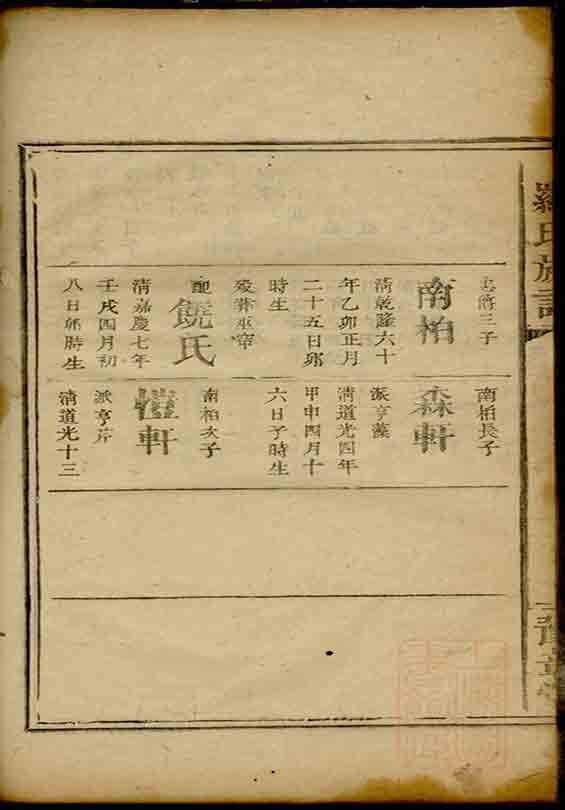 羅氏族譜
南柏
清乾隆六十
年乙卯正月
二十五日卯
時生
歿葬巫窜
配
饒氏
清嘉慶七年
壬戌四月初
八日卯時生
南柏長子
森軒
派亨藻
清道光四年
甲申四月十
六日子時生
南柏次子
軒
派亨芹
清道光十三
豫章堂